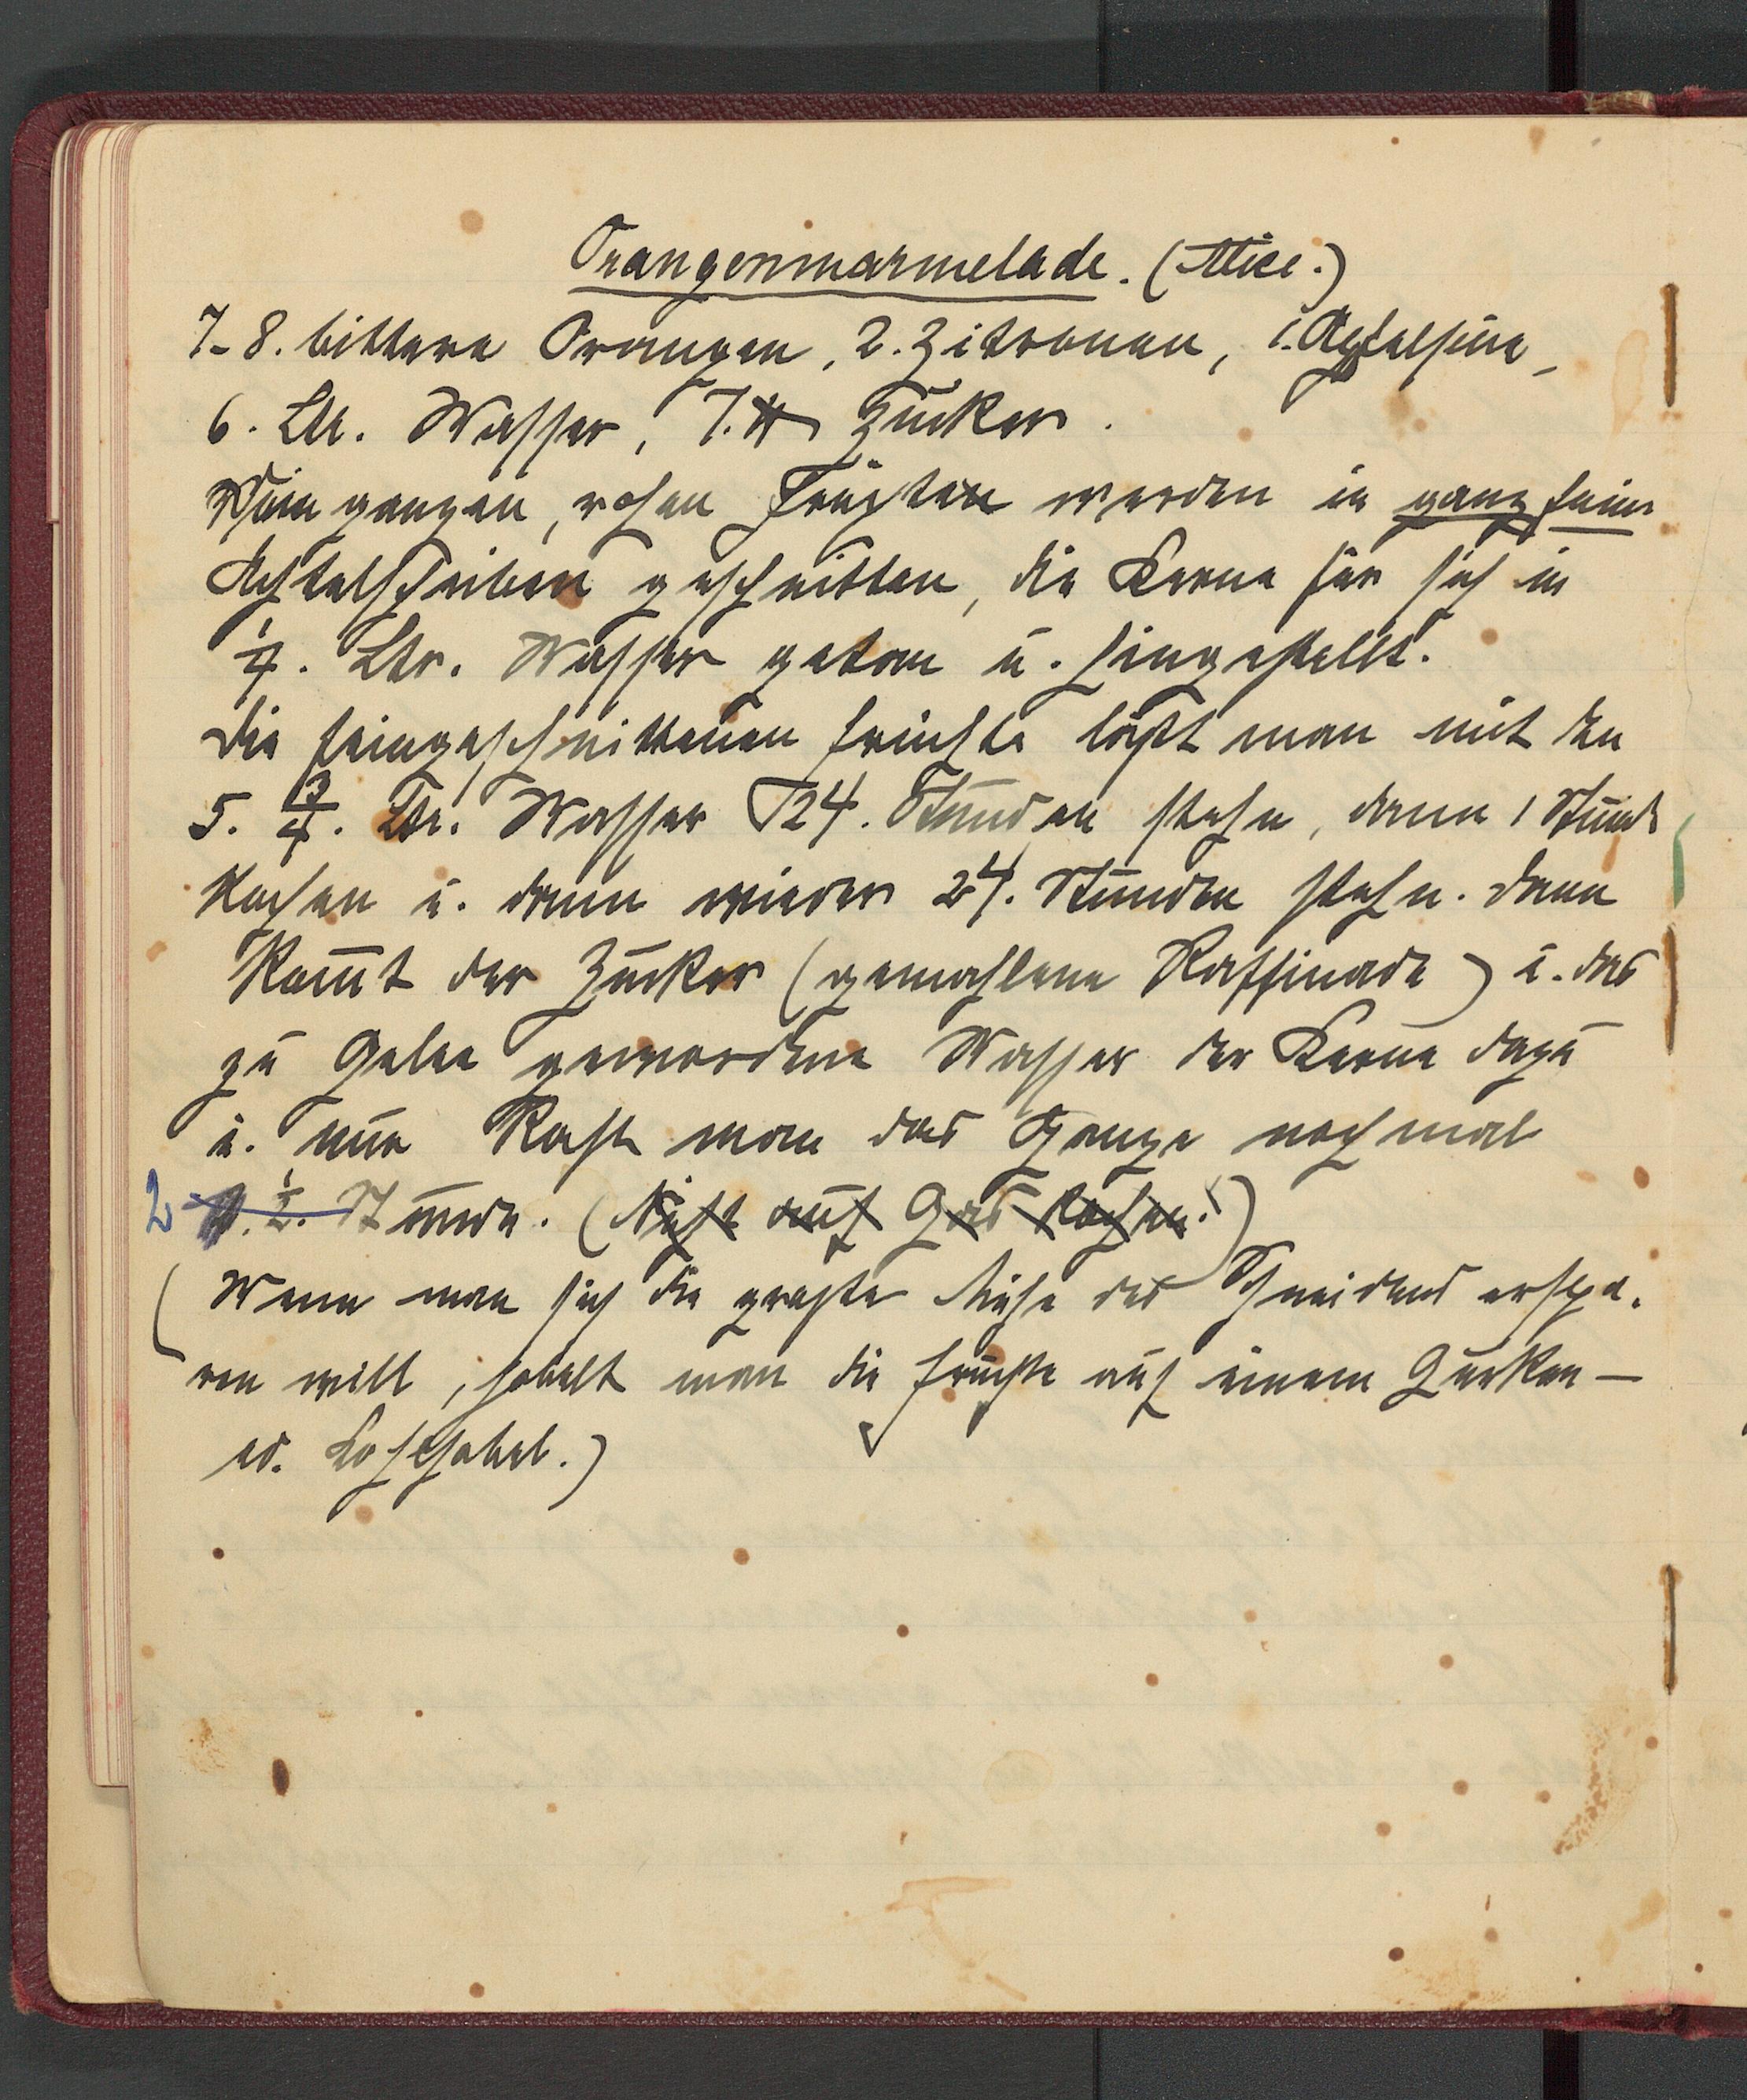 Orangenmarmelade. (Alice.)
7-8. bittere Orangen, 2. Zitronen, 1. Apfelsine,
6. Ltr. Wasser, 7. ℔ Zucker.
Die ganzen, rohen Früchte werden in ganz feine
Achtelscheiben geschnitten, die Kerne für sich in
1/4. Ltr. Wasser getan u. hingestellt.
Die feingeschnittenen Früchte läßt man mit den
5. 3/4. Ltr. Wasser 24. Stunden stehn, dann 1 Stunde
kochen u. dann wieder 24. Stunden stehn. Dann
kom̅t der Zucker (gemahlene Raffinade) u. das
zu Gelee gewordene Wasser der Kerne dazu
u. nun kocht man das Ganze nochmal
2 1/2. Stunde. (Nicht auf Gas kochen!)
(Wenn man sich die große Mühe des Schneidens erspa-
ren will, hobelt man die Früchte auf einem Gurken-
od. Kohlhobel.)